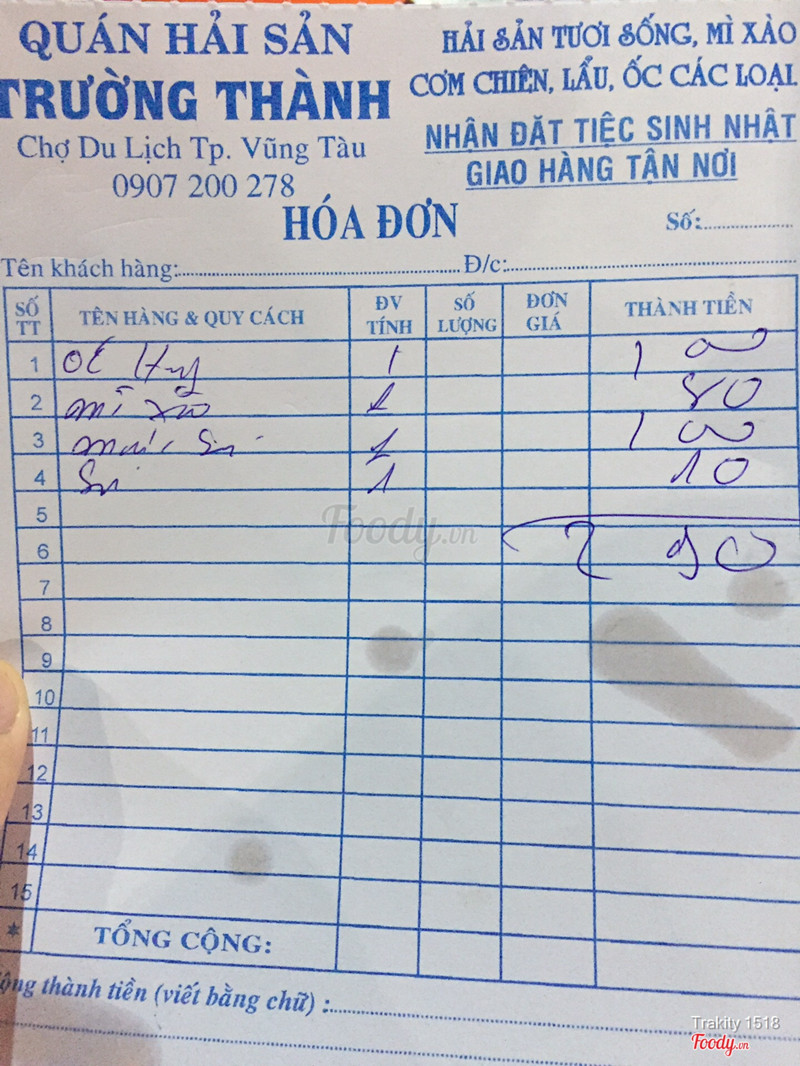 QUÁN HẢI SẢN
TRƯỜNG THÀNH
Chợ Du Lịch Tp. Vũng Tàu
0907 200 278
HẢI SẢN TƯƠI SỐNG, MÌ XÀO
CƠM CHIÊN, LẨU, ỐC CÁC LOẠI
NHẬN ĐẶT TIỆC SINH NHẬT
GIAO HÀNG TẬN NƠI
HÓA ĐƠN
Số:
Tên khách hàng: Đ/c:
SỐ TT TÊN HÀNG & QUY CÁCH ĐV TÍNH SỐ LƯỢNG ĐƠN GIÁ THÀNH TIỀN
1 1 100
2 mì xào 1 80
3 1 100
4 1 10
5
6 290
7
8
9
10
11
12
13
14
15
* TỔNG CỘNG:
Cộng thành tiền (viết bằng chữ) :
Foody.vn
Trakity 1518
Foody.vn